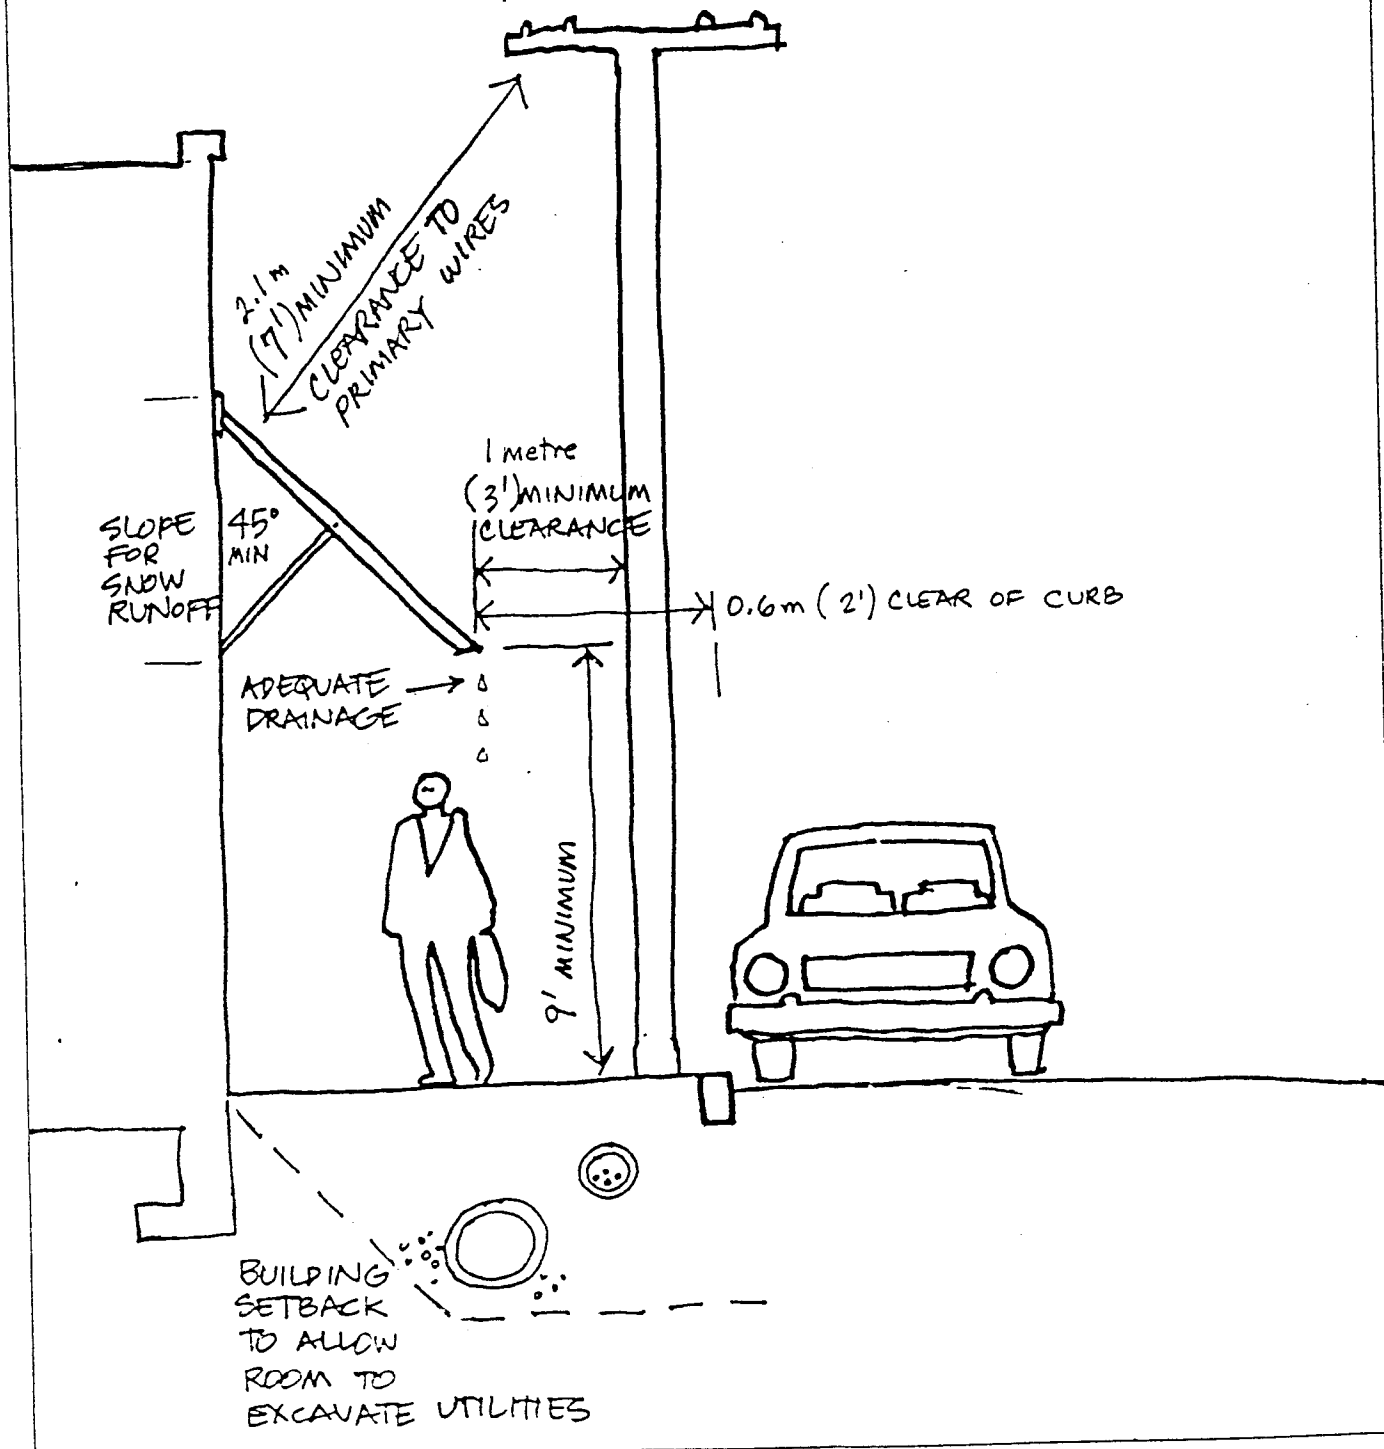 2.1 m
(7') MINIMUM
CLEARANCE TO
PRIMARY WIRES
1 metre
(3') MINIMUM
CLEARANCE
SLOPE
FOR
SNOW
RUNOFF
45°
MIN
0.6m (2') CLEAR OF CURB
ADEQUATE
DRAINAGE
9' MINIMUM
BUILDING
SETBACK
TO ALLOW
ROOM TO
EXCAVATE UTILITIES